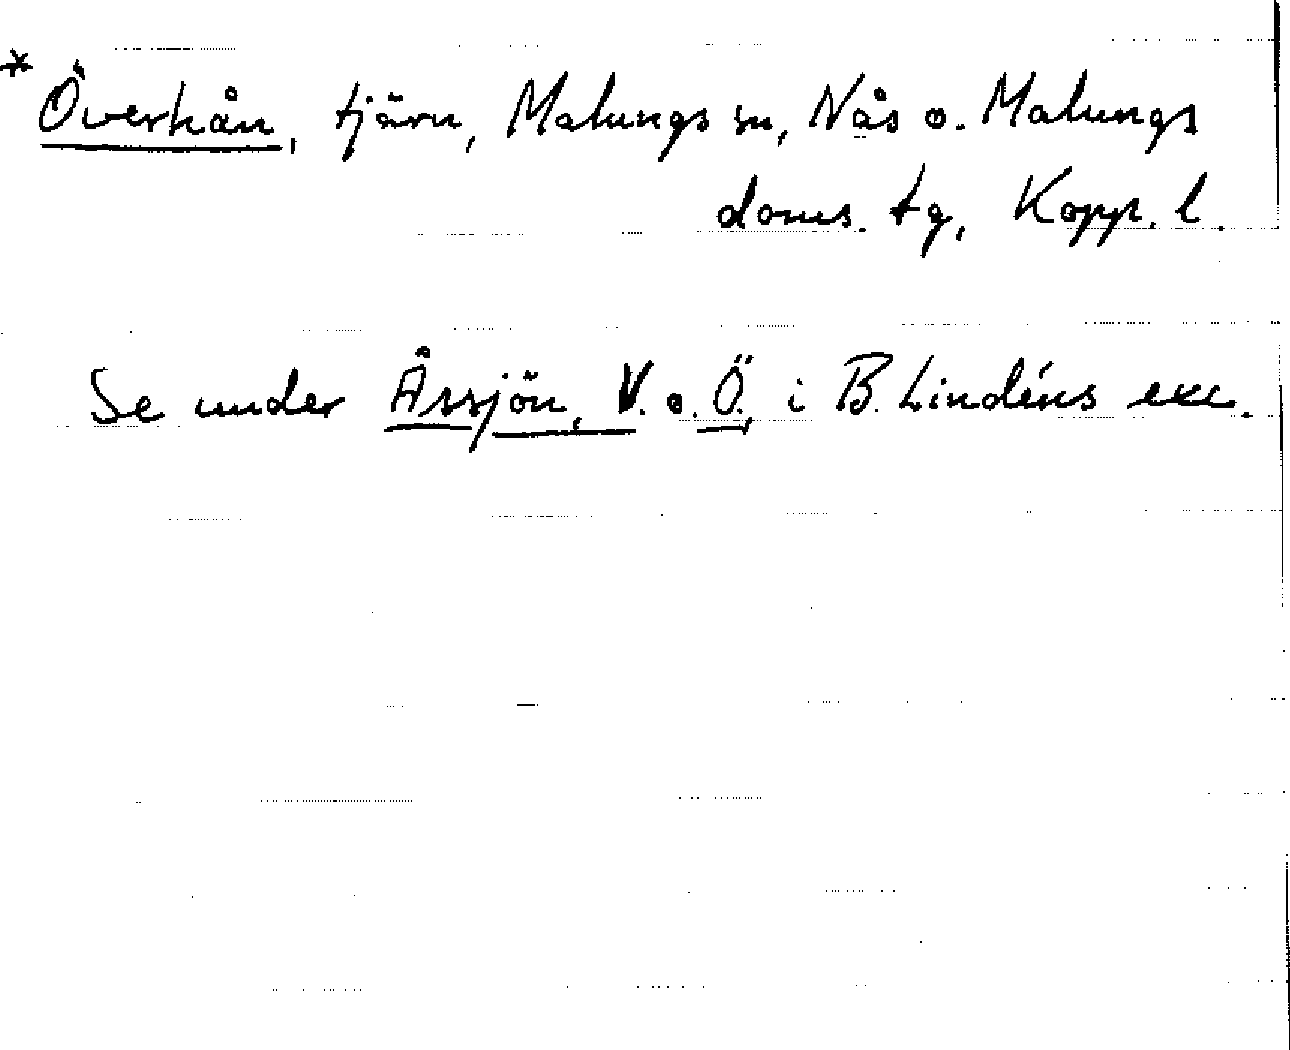 * Överhån, tjärn, Malungs sn, Nås o. Malungs
doms. tg, Kopp. l.
Se under Åssjön, V. o. Ö., i B. Lindéns exc.